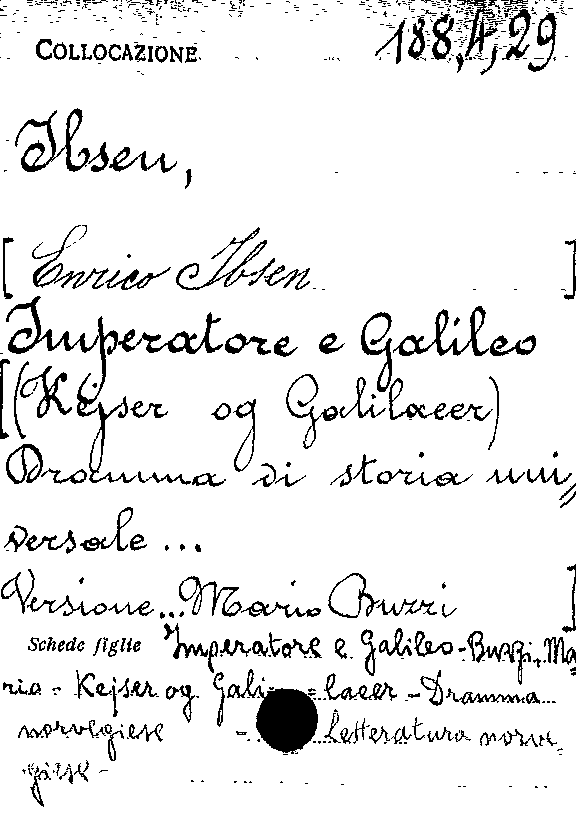 COLLOCAZIONE 188,4,29
Ibsen,
[ Enrico Ibsen ]
Imperatore e Galileo
[(Kejser og Galilaeer)
Dramma di storia uni//
versale ...
Versione... Mario Buzzi ]
Schede figlie Imperatore e Galileo - Buzzi, Ma
rio - Kejser og Gali = laeer - Dramma
norvegiese - Letteratura norve
giese -